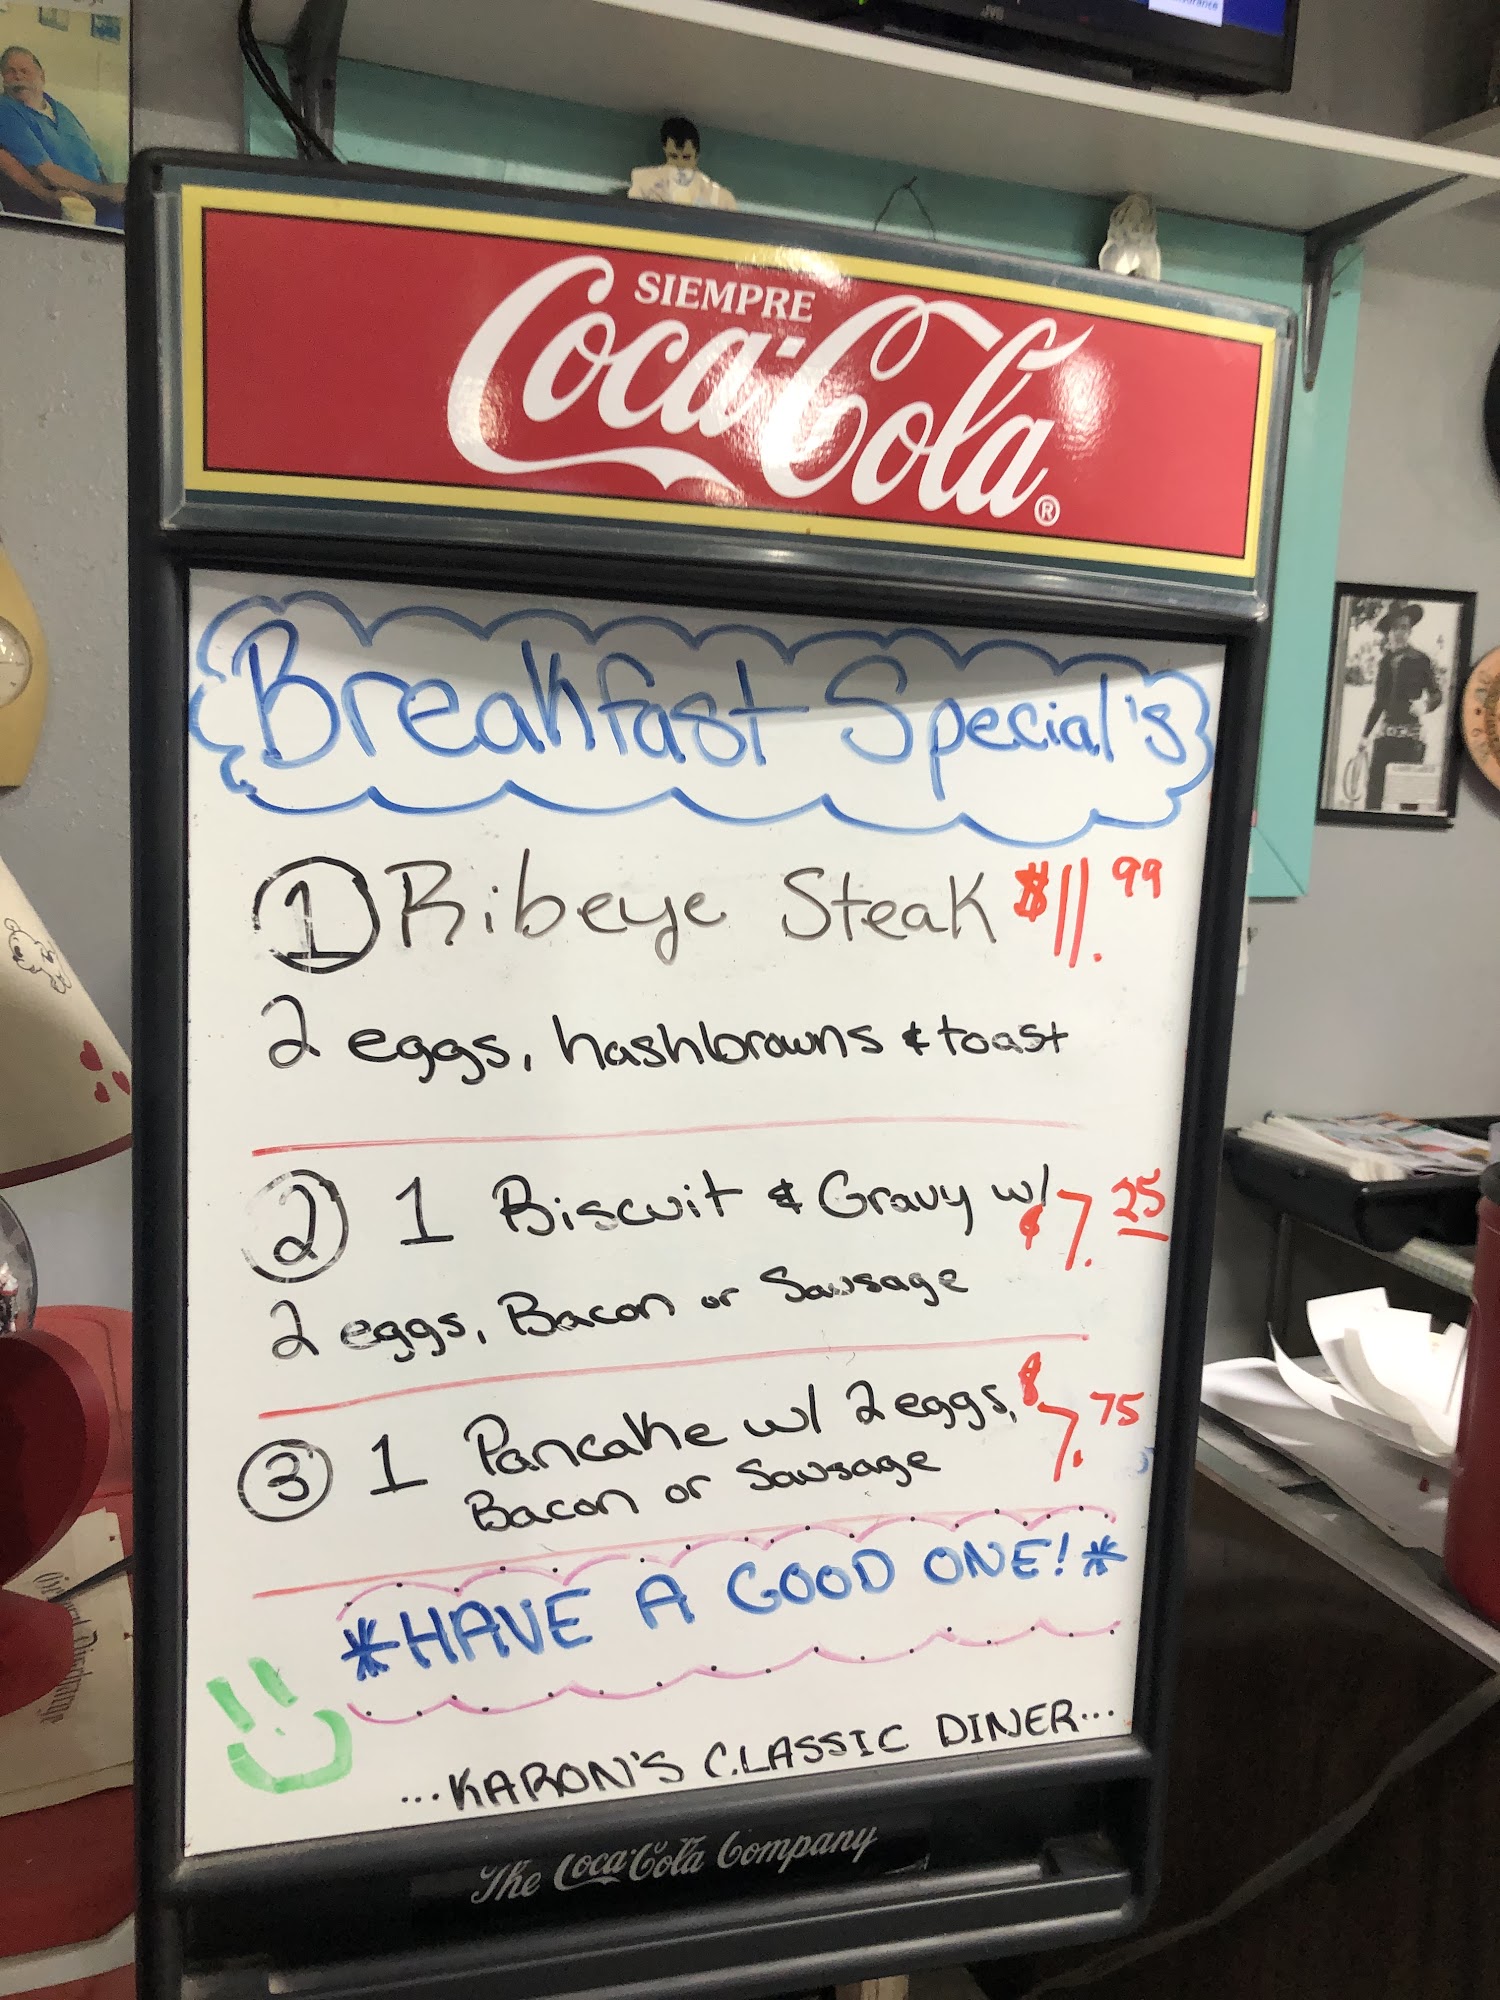 JVC
SIEMPRE
Coca-Cola®
Breakfast Special's
1 Ribeye Steak $11.99
2 eggs, hashbrowns & toast
2 1 Biscuit & Gravy w/ $7.25
2 eggs, Bacon or Sausage
3 1 Pancake w/ 2 eggs, $7.75
Bacon or Sausage
*HAVE A GOOD ONE!*
...KARON'S CLASSIC DINER...
The Coca-Cola Company